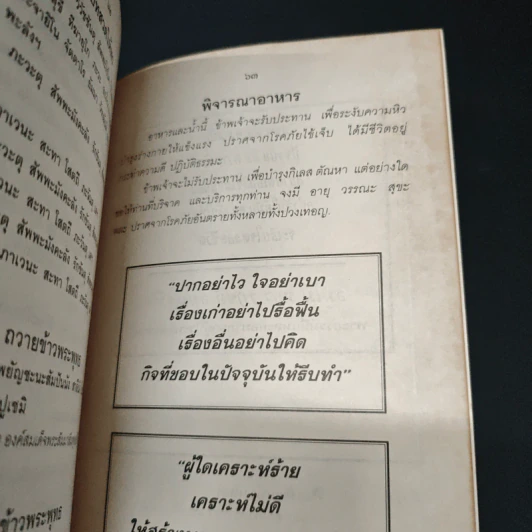 พะลังฯ
ภะวะตุ สัพพะมัง
ภาเวนะ สะทา โสตถี
ภะวะตุ สัพพะมังคะลัง
ภาเวนะ สะทา โสตถี
ถวายข้าวพระพุทธ
พยัญชะนะสัมปันนัง
ปูเชมิ
ข้าวพระพุทธ
๖๓
พิจารณาอาหาร
อาหารและน้ำนี้ ข้าพเจ้าจะรับประทาน เพื่อระงับความหิว
บำรุงร่างกายให้แข็งแรง ปราศจากโรคภัยไข้เจ็บ ได้มีชีวิตอยู่
กระทำความดี ปฏิบัติธรรมะ
ข้าพเจ้าจะไม่รับประทาน เพื่อบำรุงกิเลส ตัณหา แต่อย่างใด
ขอให้ท่านที่บริจาค และบริการทุกท่าน จงมี อายุ วรรณะ สุขะ
พละ ปราศจากโรคภัยอันตรายทั้งหลายทั้งปวงเทอญ.
"ปากอย่าไว ใจอย่าเบา
เรื่องเก่าอย่าไปรื้อฟื้น
เรื่องอื่นอย่าไปคิด
กิจที่ชอบในปัจจุบันให้รีบทำ"
"ผู้ใดเคราะห์ร้าย
เคราะห์ไม่ดี